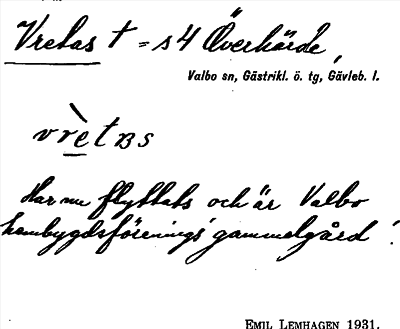 Vretas † = s4 Överhärde,
Valbo sn, Gästrikl. ö. tg, Gävleb. l.
vrètBs
Har nu flyttats och är Valbo
hembygdsförenings gammelgård!
EMIL LEMHAGEN 1931.